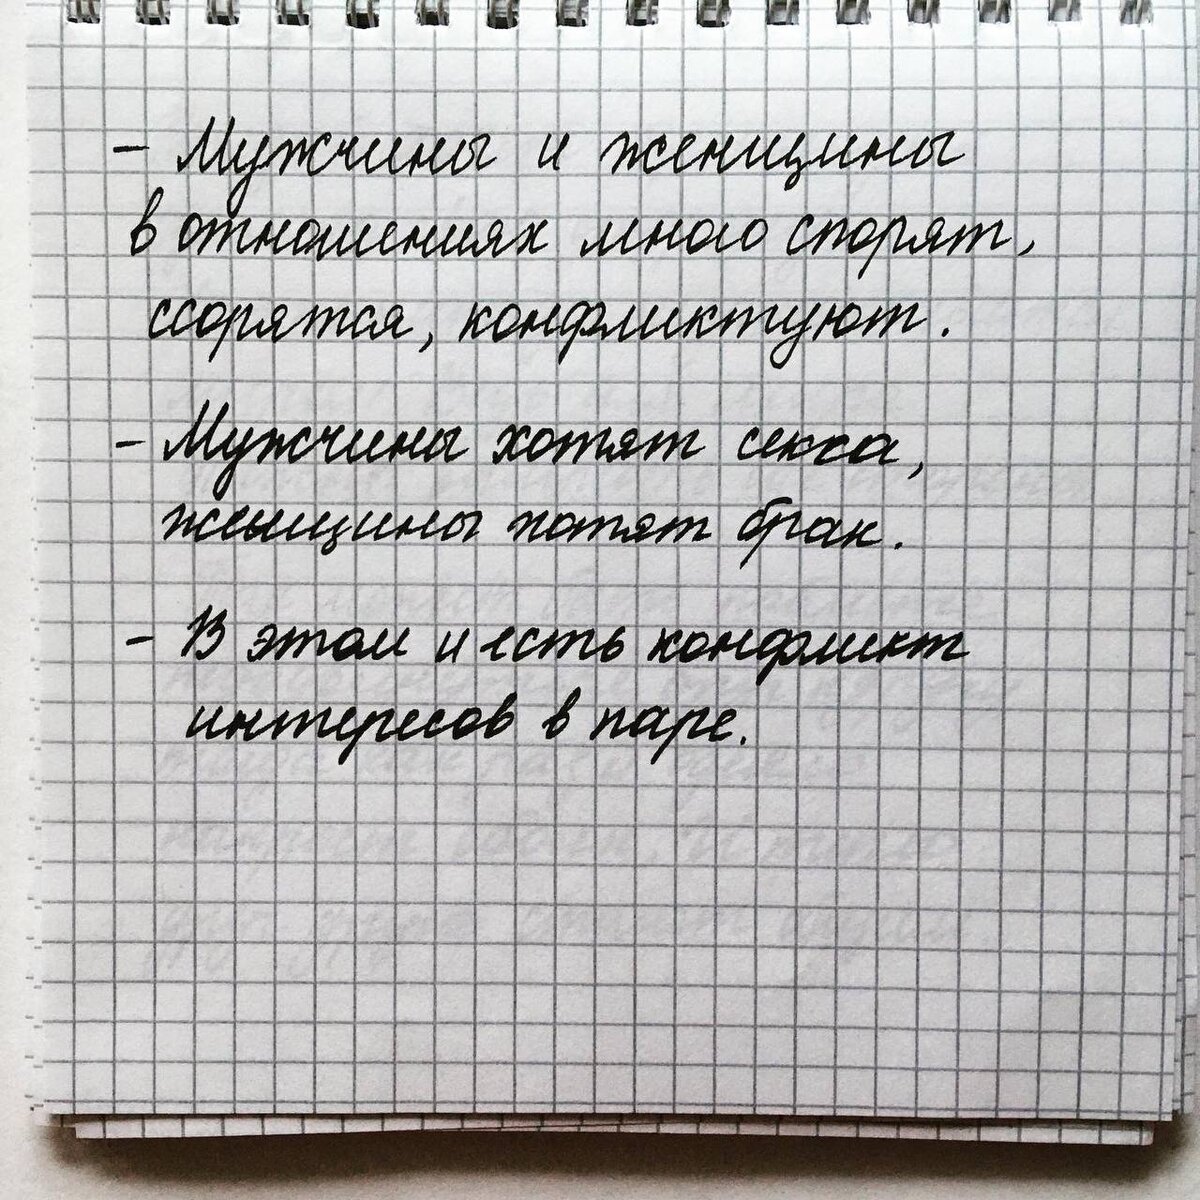 - Мужчины и женщины
в отношениях много спорят,
ссорятся, конфликтуют.
- Мужчины хотят секса,
женщины хотят брак.
- В этом и есть конфликт
интересов в паре.